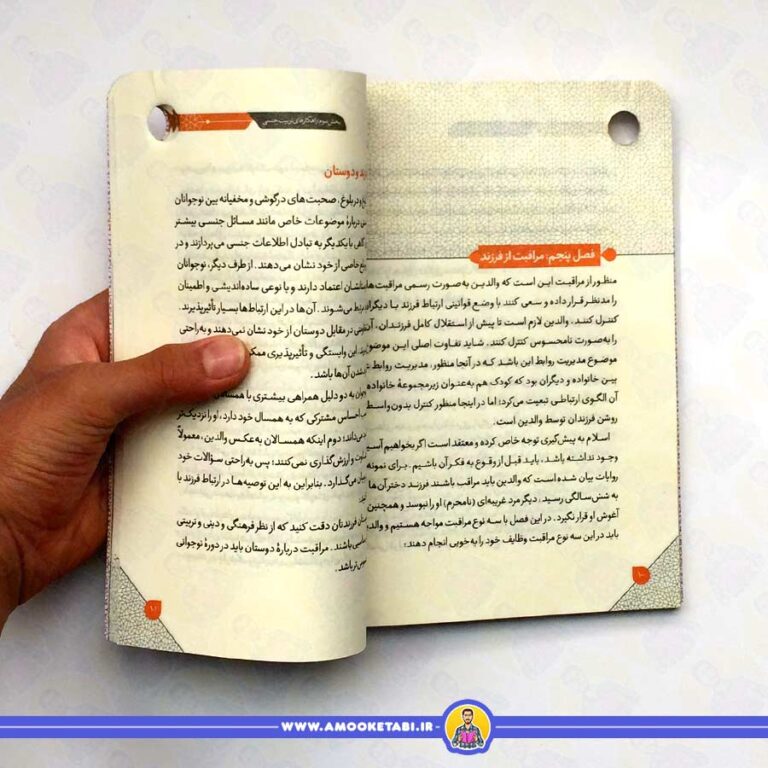 فصل پنجم: مراقبت از فرزند
منظور از مراقبت این است که والدین به‌صورت رسمی مراقبت‌ها
را مدنظر قرار داده و سعی کنند با وضع قوانینی ارتباط فرزند با دیگران
کنترل کنند. والدین لازم است تا پیش از استقلال کامل فرزندان، آن
را به‌صورت نامحسوس کنترل کنند. شاید تفاوت اصلی این موضوع
موضوع مدیریت روابط این باشد که در آنجا منظور، مدیریت روابط
بین خانواده و دیگران بود که کودک هم به‌عنوان زیرمجموعهٔ خانواده
آن الگوی ارتباطی تبعیت می‌کرد؛ اما در اینجا منظور کنترل بدون واسط
روشن فرزندان توسط والدین است.
اسلام به پیش‌گیری توجه خاص کرده و معتقد است اگر بخواهیم آسی
وجود نداشته باشد، باید قبل از وقوع به فکر آن باشیم. برای نمونه
روایات بیان شده است که والدین باید مراقب باشند فرزند دختر آن‌ها
به شش‌سالگی رسید، دیگر مرد غریبه‌ای (نامحرم) او را نبوسد و همچنین
آغوش او قرار نگیرد. در این فصل با سه نوع مراقبت مواجه هستیم و والدی
باید در این سه نوع مراقبت وظایف خود را به‌خوبی انجام دهند:
بخش سوم: راهکارهای تربیت جنسی
دوستان
در بلوغ، صحبت‌های درگوشی و مخفیانه بین نوجوانان
دربارهٔ موضوعات خاص مانند مسائل جنسی بیشتر
با یکدیگر به تبادل اطلاعات جنسی می‌پردازند و در
خاصی از خود نشان می‌دهند. از طرف دیگر، نوجوانان
اعتماد دارند و با نوعی ساده‌اندیشی و اطمینان
می‌شوند. آن‌ها در این ارتباط‌ها بسیار تأثیرپذیرند.
در مقابل دوستان از خود نشان نمی‌دهند و به‌راحتی
این وابستگی و تأثیرپذیری
آن‌ها باشد.
به دو دلیل همراهی بیشتری با
احساس مشترکی که به همسال خود دارد، او را نزدیک‌تر
دوم اینکه همسالان به‌عکس والدین، معمولاً
و ارزش‌گذاری نمی‌کنند؛ پس به‌راحتی سؤالات خود
می‌گذارد. بنابراین به این توصیه‌ها در ارتباط فرزند با
فرزندتان دقت کنید که از نظر فرهنگی و دینی و تربیتی
باشند. مراقبت دربارهٔ دوستان باید در دورهٔ نوجوانی
باشد.
WWW.AMOOKETABI.IR